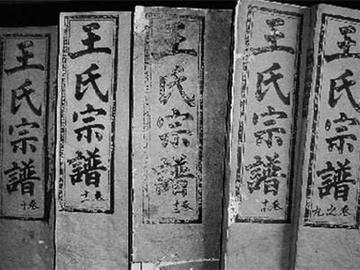 王氏宗譜
卷十
王氏宗譜
卷十
王氏宗譜
卷
王氏宗譜
卷十
王氏宗譜
卷之九